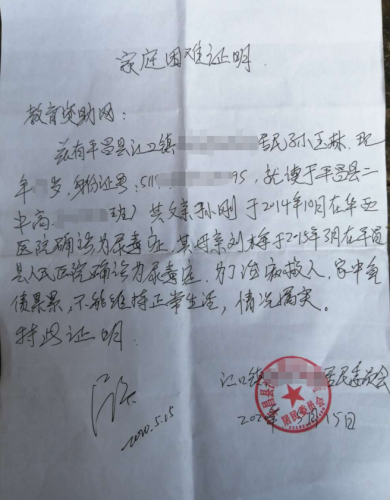 家庭困难证明
教育资助网：
兹有平昌县江口镇 居民孙玉林，现
年 岁，身份证号：511 95，就读于平昌县二
中高 班）其父亲孙刚于2014年10月在华西
医院确诊为尿毒症，其母亲刘 于2015年3月在平昌
县人民医院确诊为尿毒症，为了治病 入，家中负
债累累，不能维持正常生活，情况属实。
特此证明
江口镇 居民委员会
2020年5月15日
2020.5.15